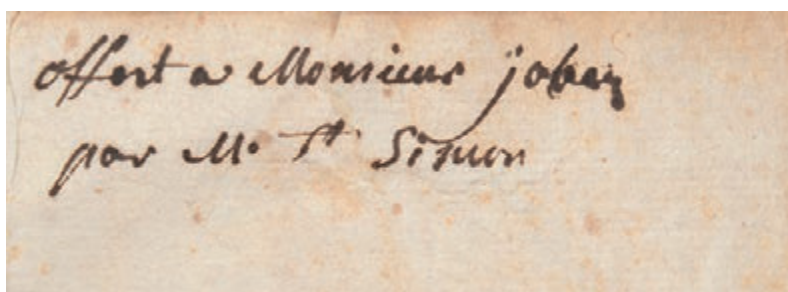 offert a Monsieur jobez
par M. St Simon